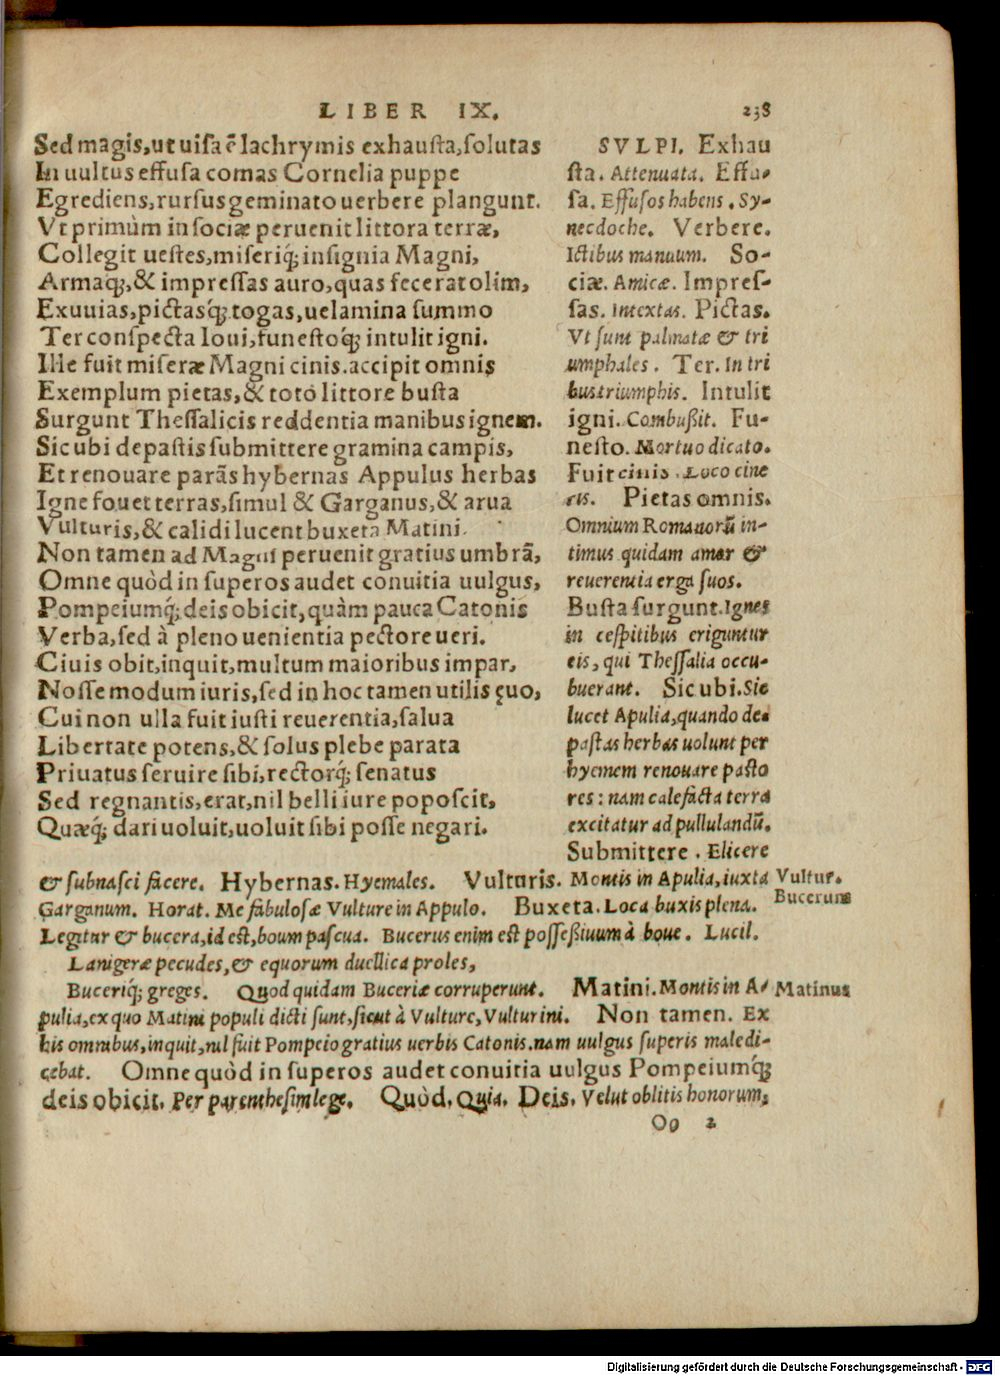 LIBER IX.
238
Sed magis, ut uisa ē lachrymis exhausta, solutas
In uultus effusa comas Cornelia puppe
Egrediens, rursus geminato uerbere plangunt.
Vt primùm in sociæ peruenit littora terræ,
Collegit uestes, miseriq́; insignia Magni,
Armaq́;, & impressas auro, quas fecerat olim,
Exuuias, pictasq́; togas, uelamina summo
Ter conspecta Ioui, funestoq́; intulit igni.
Ille fuit miseræ Magni cinis. accipit omnis
Exemplum pietas, & toto littore busta
Surgunt Thessalicis reddentia manibus ignem.
Sic ubi depastis submittere gramina campis,
Et renouare parãs hybernas Appulus herbas
Igne fouet terras, simul & Garganus, & arua
Vulturis, & calidi lucent buxeta Matini.
Non tamen ad Magni peruenit gratius umbrã,
Omne quòd in superos audet conuitia uulgus,
Pompeiumq́; deis obicit, quàm pauca Catonis
Verba, sed à pleno uenientia pectore ueri.
Ciuis obit, inquit, multum maioribus impar,
Nosse modum iuris, sed in hoc tamen utilis ęuo,
Cui non ulla fuit iusti reuerentia, salua
Libertate potens, & solus plebe parata
Priuatus seruire sibi, rectorq́; senatus
Sed regnantis, erat, nil belli iure poposcit,
Quæq́; dari uoluit, uoluit sibi posse negari.
SVLPI. Exhau
sta. Attenuata. Effu-
sa. Effusos habens. Sy-
necdoche. Verbere.
Ictibus manuum. So-
ciæ. Amicæ. Impres-
sas. Intextas. Pictas.
Vt sunt palmatæ & tri
umphales. Ter. In tri
bus triumphis. Intulit
igni. Combußit. Fu-
nesto. Mortuo dicato.
Fuit cinis. Loco cine
ris. Pietas omnis.
Omnium Romanorũ in-
timus quidam amor &
reuerentia erga suos.
Busta surgunt. Ignes
in cespitibus eriguntur
eis, qui Thessalia occu-
buerant. Sic ubi. Sic
lucet Apulia, quando de-
pastas herbas uolunt per
hyemem renouare pasto
res: nam calefacta terra
excitatur ad pullulandũ.
Submittere. Elicere
& subnasci facere. Hybernas. Hyemales. Vulturis. Montis in Apulia, iuxta
Garganum. Horat. Me fabulosæ Vulture in Appulo. Buxeta. Loca buxis plena.
Legitur & bucera, id est, boum pascua. Bucerus enim est possessiuum à boue. Lucil.
Lanigeræ pecudes, & equorum duellica proles,
Buceriq́; greges. Quod quidam Buceriæ corruperunt. Matini. Montis in A-
pulia, ex quo Matini populi dicti sunt, sicut à Vulture, Vulturini. Non tamen. Ex
his omnibus, inquit, nil fuit Pompeio gratius uerbis Catonis. nam uulgus superis maledi-
cebat. Omne quòd in superos audet conuitia uulgus Pompeiumq́;
deis obicit. Per parenthesim lege. Quòd. Quia. Deis. Velut oblitis honorum,
Vultur.
Bucerum
Matinus
Oo 2
Digitalisierung gefördert durch die Deutsche Forschungsgemeinschaft - DFG